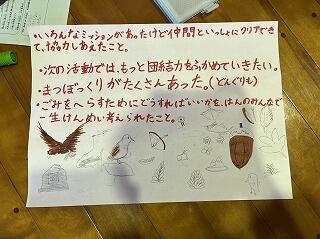 ・いろんなミッションがあったけど仲間といっしょにクリアでき
て、協力しあえたこと。
・次の活動では、もっと団結力をふかめていきたい。
・まつぼっくりがたくさんあった。(どんぐりも)
・ごみをへらすためにどうすればいいかを、はんのみんなで
一生けんめい考えられたこと。